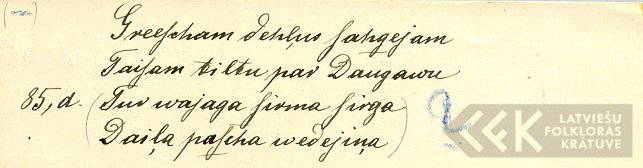 (—)
Greescham dehļus sahgejam
Taisam tiltu par Daugawu
85,d. (Tur wajaga sirma sirga
Daiļa pascha wedejiņa)
LATVIEŠU
FOLKLORAS
KRĀTUVE